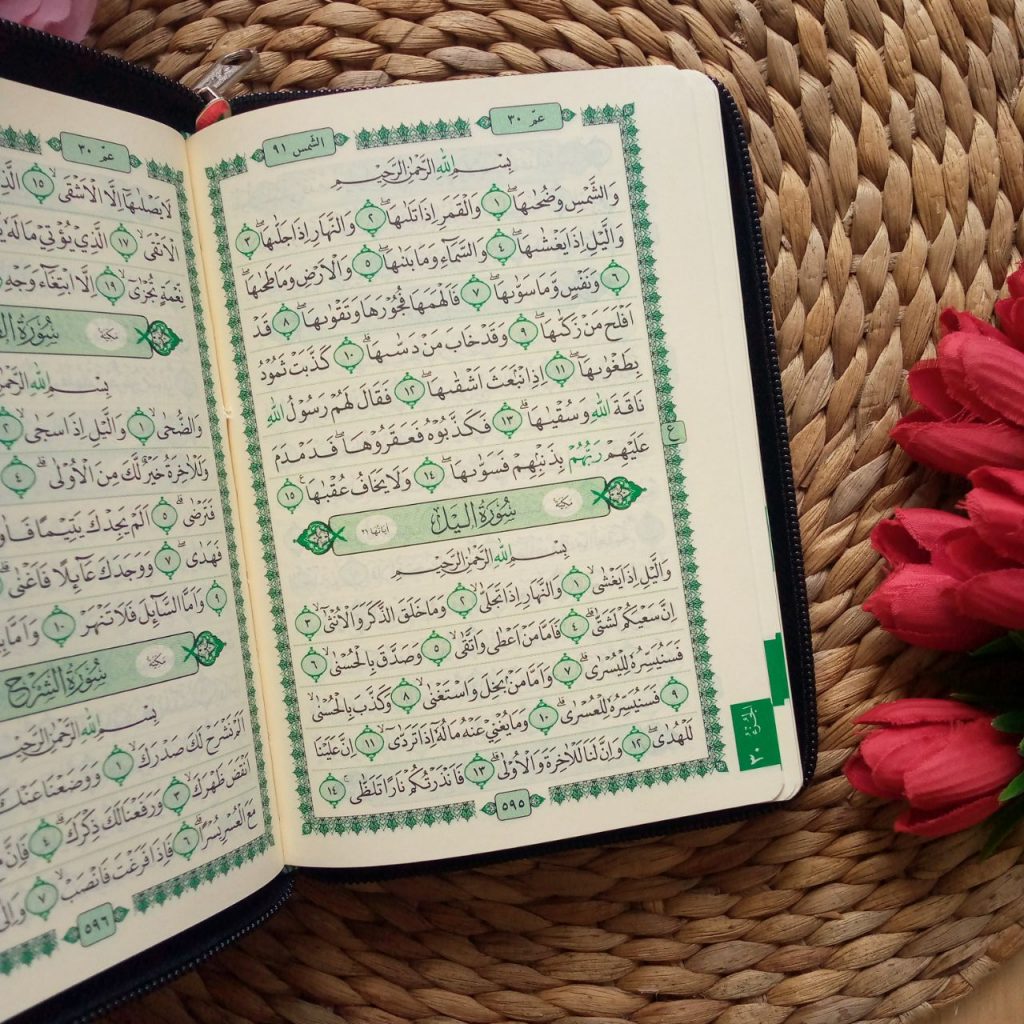 عمّ ٣٠
الشّمس ٩١
بِسْمِ اللهِ الرَّحْمٰنِ الرَّحِيْمِ
وَالشَّمْسِ وَضُحٰىهَاۖ ١ وَالْقَمَرِ اِذَا تَلٰىهَاۖ ٢ وَالنَّهَارِ اِذَا جَلّٰىهَاۖ ٣
وَالَّيْلِ اِذَا يَغْشٰىهَاۖ ٤ وَالسَّمَاۤءِ وَمَا بَنٰىهَاۖ ٥ وَالْاَرْضِ وَمَا طَحٰىهَاۖ
٦ وَنَفْسٍ وَّمَا سَوّٰىهَاۖ ٧ فَاَلْهَمَهَا فُجُوْرَهَا وَتَقْوٰىهَاۖ ٨ قَدْ
اَفْلَحَ مَنْ زَكّٰىهَاۖ ٩ وَقَدْ خَابَ مَنْ دَسّٰىهَاۗ ١٠ كَذَّبَتْ ثَمُوْدُ
بِطَغْوٰىهَآۖ ١١ اِذِ انْۢبَعَثَ اَشْقٰىهَاۖ ١٢ فَقَالَ لَهُمْ رَسُوْلُ اللهِ
نَاقَةَ اللهِ وَسُقْيٰهَاۗ ١٣ فَكَذَّبُوْهُ فَعَقَرُوْهَاۖ فَدَمْدَمَ
عَلَيْهِمْ رَبُّهُمْ بِذَنْۢبِهِمْ فَسَوّٰىهَاۖ ١٤ وَلَا يَخَافُ عُقْبٰهَا ١٥
سُوْرَةُ الَّيْلِ مَكِّيَّة اٰيَاتُهَا ٢١
بِسْمِ اللهِ الرَّحْمٰنِ الرَّحِيْمِ
وَالَّيْلِ اِذَا يَغْشٰىۙ ١ وَالنَّهَارِ اِذَا تَجَلّٰىۙ ٢ وَمَا خَلَقَ الذَّكَرَ وَالْاُنْثٰىۙ ٣
اِنَّ سَعْيَكُمْ لَشَتّٰىۗ ٤ فَاَمَّا مَنْ اَعْطٰى وَاتَّقٰىۙ ٥ وَصَدَّقَ بِالْحُسْنٰىۙ ٦
فَسَنُيَسِّرُهٗ لِلْيُسْرٰىۗ ٧ وَاَمَّا مَنْۢ بَخِلَ وَاسْتَغْنٰىۙ ٨ وَكَذَّبَ بِالْحُسْنٰىۙ
٩ فَسَنُيَسِّرُهٗ لِلْعُسْرٰىۗ ١٠ وَمَا يُغْنِيْ عَنْهُ مَالُهٗٓ اِذَا تَرَدّٰىۙ ١١ اِنَّ عَلَيْنَا
لَلْهُدٰىۖ ١٢ وَاِنَّ لَنَا لَلْاٰخِرَةَ وَالْاُوْلٰىۗ ١٣ فَاَنْذَرْتُكُمْ نَارًا تَلَظّٰىۚ ١٤
٥٩٥
الجزء ٣٠
ع
عمّ ٣٠
لَا يَصْلٰىهَآ اِلَّا الْاَشْقَى ١٥
الْاَتْقَى ١٧ الَّذِيْ يُؤْتِيْ مَالَهٗ
نِّعْمَةٍ تُجْزٰىٓ ١٩ اِلَّا ابْتِغَاۤءَ وَجْهِ
سُوْرَةُ مَكِّيَّة
بِسْمِ اللهِ
وَالضُّحٰىۙ ١ وَالَّيْلِ اِذَا سَجٰىۙ ٢
وَلَلْاٰخِرَةُ خَيْرٌ لَّكَ مِنَ الْاُوْلٰىۗ ٤
فَتَرْضٰىۗ ٥ اَلَمْ يَجِدْكَ يَتِيْمًا
فَهَدٰىۖ ٧ وَوَجَدَكَ عَاۤىِٕلًا فَاَغْنٰىۗ
٩ وَاَمَّا السَّاۤىِٕلَ فَلَا تَنْهَرْ ١٠
سُوْرَةُ الشَّرْحِ مَكِّيَّة
بِسْمِ اللهِ الرَّحْمٰنِ الرَّحِيْمِ
اَلَمْ نَشْرَحْ لَكَ صَدْرَكَۙ ١ وَوَضَعْنَا عَنْكَ
اَنْقَضَ ظَهْرَكَۙ ٣ وَرَفَعْنَا لَكَ ذِكْرَكَۗ ٤ فَاِنَّ
مَعَ الْعُسْرِ يُسْرًاۗ ٦ فَاِذَا فَرَغْتَ فَانْصَبْۙ ٧
٥٩٦